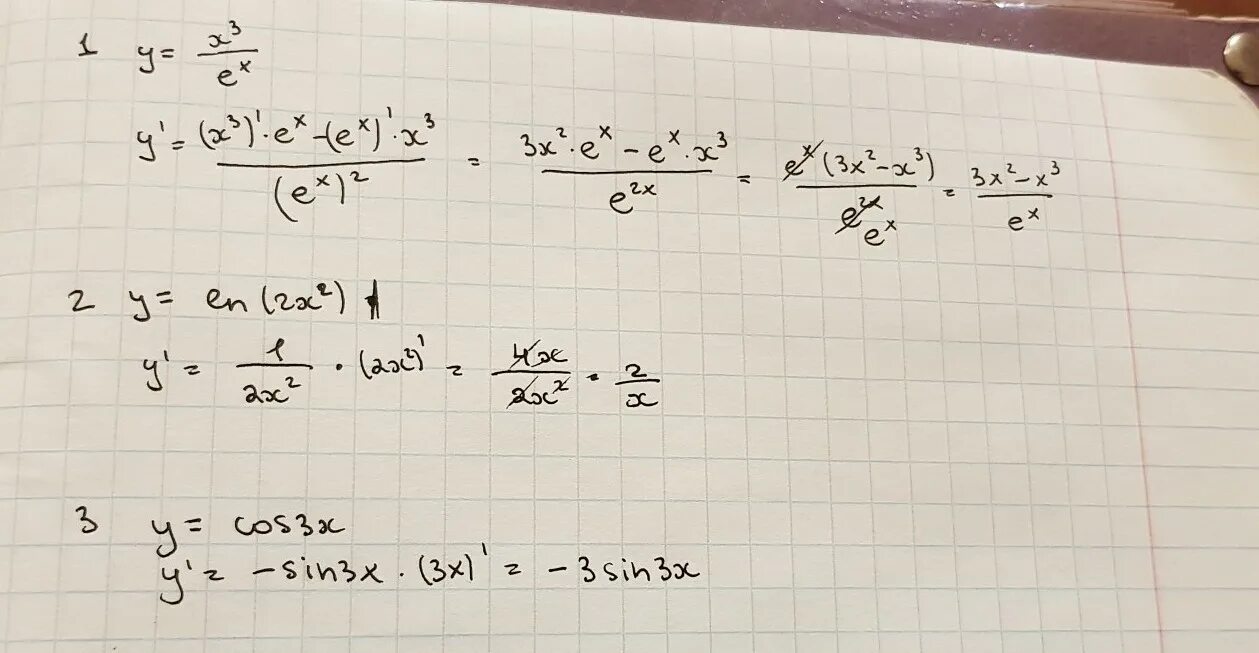 1 y = x³/eˣ
y' = ((x³)'·eˣ - (eˣ)'·x³)/(eˣ)² = (3x²·eˣ - eˣ·x³)/e²ˣ = eˣ(3x² - x³)/e²ˣ eˣ = (3x² - x³)/eˣ
2 y = en(2x²)
y' = 1/2x² · (2x²)' = 4x/2x² = 2/x
3 y = cos3x
y' = -sin3x · (3x)' = -3sin3x